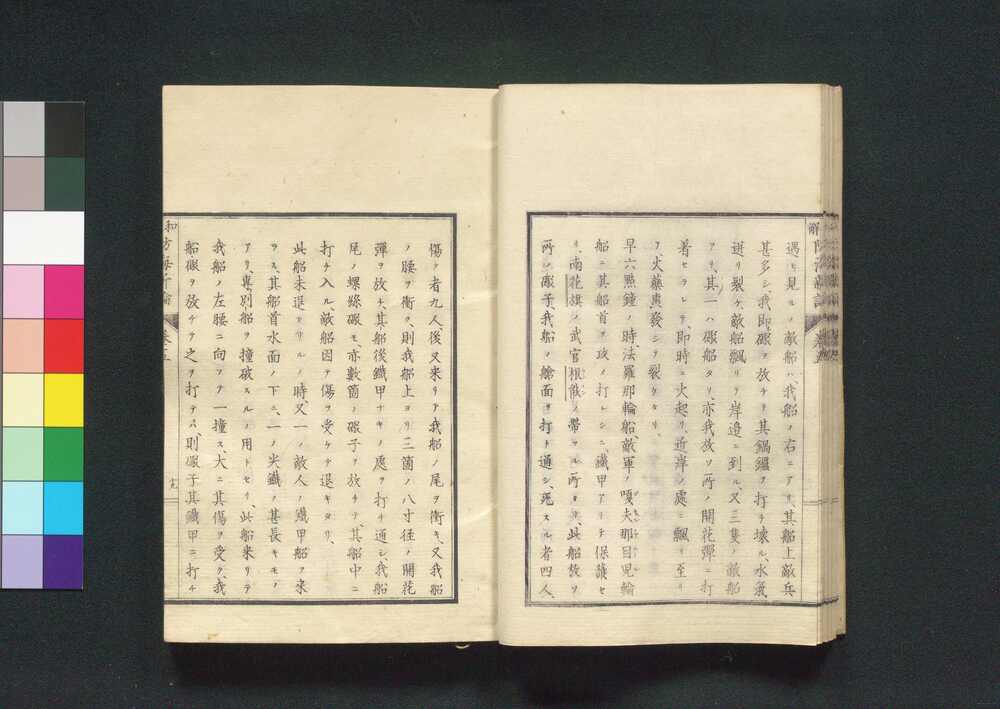 遇ヒ見ルノ敵船ハ、我船ノ右ニアリ、其船上敵兵
甚多シ、我即礮ヲ放チテ其鍋鑪ヲ打チ壊ル、水氣
迸リ裂ケ、敵船飄リテ岸邉ニ到ル、又三隻ノ敵船
アリ、其一ハ礮船タリ、亦我放ツ所ノ開花彈ニ打
着セラレテ、即時ニ火起リ、近岸ノ處ニ飄リ至リ
テ火藥轟發シテ裂ケタリ、
早六點鍾ノ時、法羅那輪船、敵軍ノ嘎夫那目児輪
船ニ其船首ヲ攻メ打レシニ、鐵甲アリテ保護セ
リ、南花旗ノ武官根飢ノ帶フル所ナリ、此船放ツ
両ノ礮子、我船ノ艙面ヲ打ト通シ、死スル者四人、
傷ク者九人、後又来リテ我船ノ尾ヲ衝キ、又我船
ノ腰ヲ衝ク、則我船上ヨリ三箇ノ八寸径ノ開花
彈ヲ放チ、其船後鐵甲ナキノ處ヲ打チ通シ、我船
尾ノ螺絲礮モ、亦數箇ノ礮子ヲ放チテ、其船中ニ
打チ入ル、敵船因テ傷ヲ受ケテ退キタリ、
此船未退カサルノ時、又一ノ敵人ノ鐵甲船ヲ来
ラス、其船首水面ノ下ニ、一ノ尖鐵ノ甚長キモノ
アリ、專別船ヲ撞破スルノ用トセリ、此船来リテ
我船ノ左腰ニ向フテ一撞ス、大ニ其傷ヲ受ク、我
船礮ヲ放チテ之ヲ打テハ、則礮子其鐵甲ニ打チ